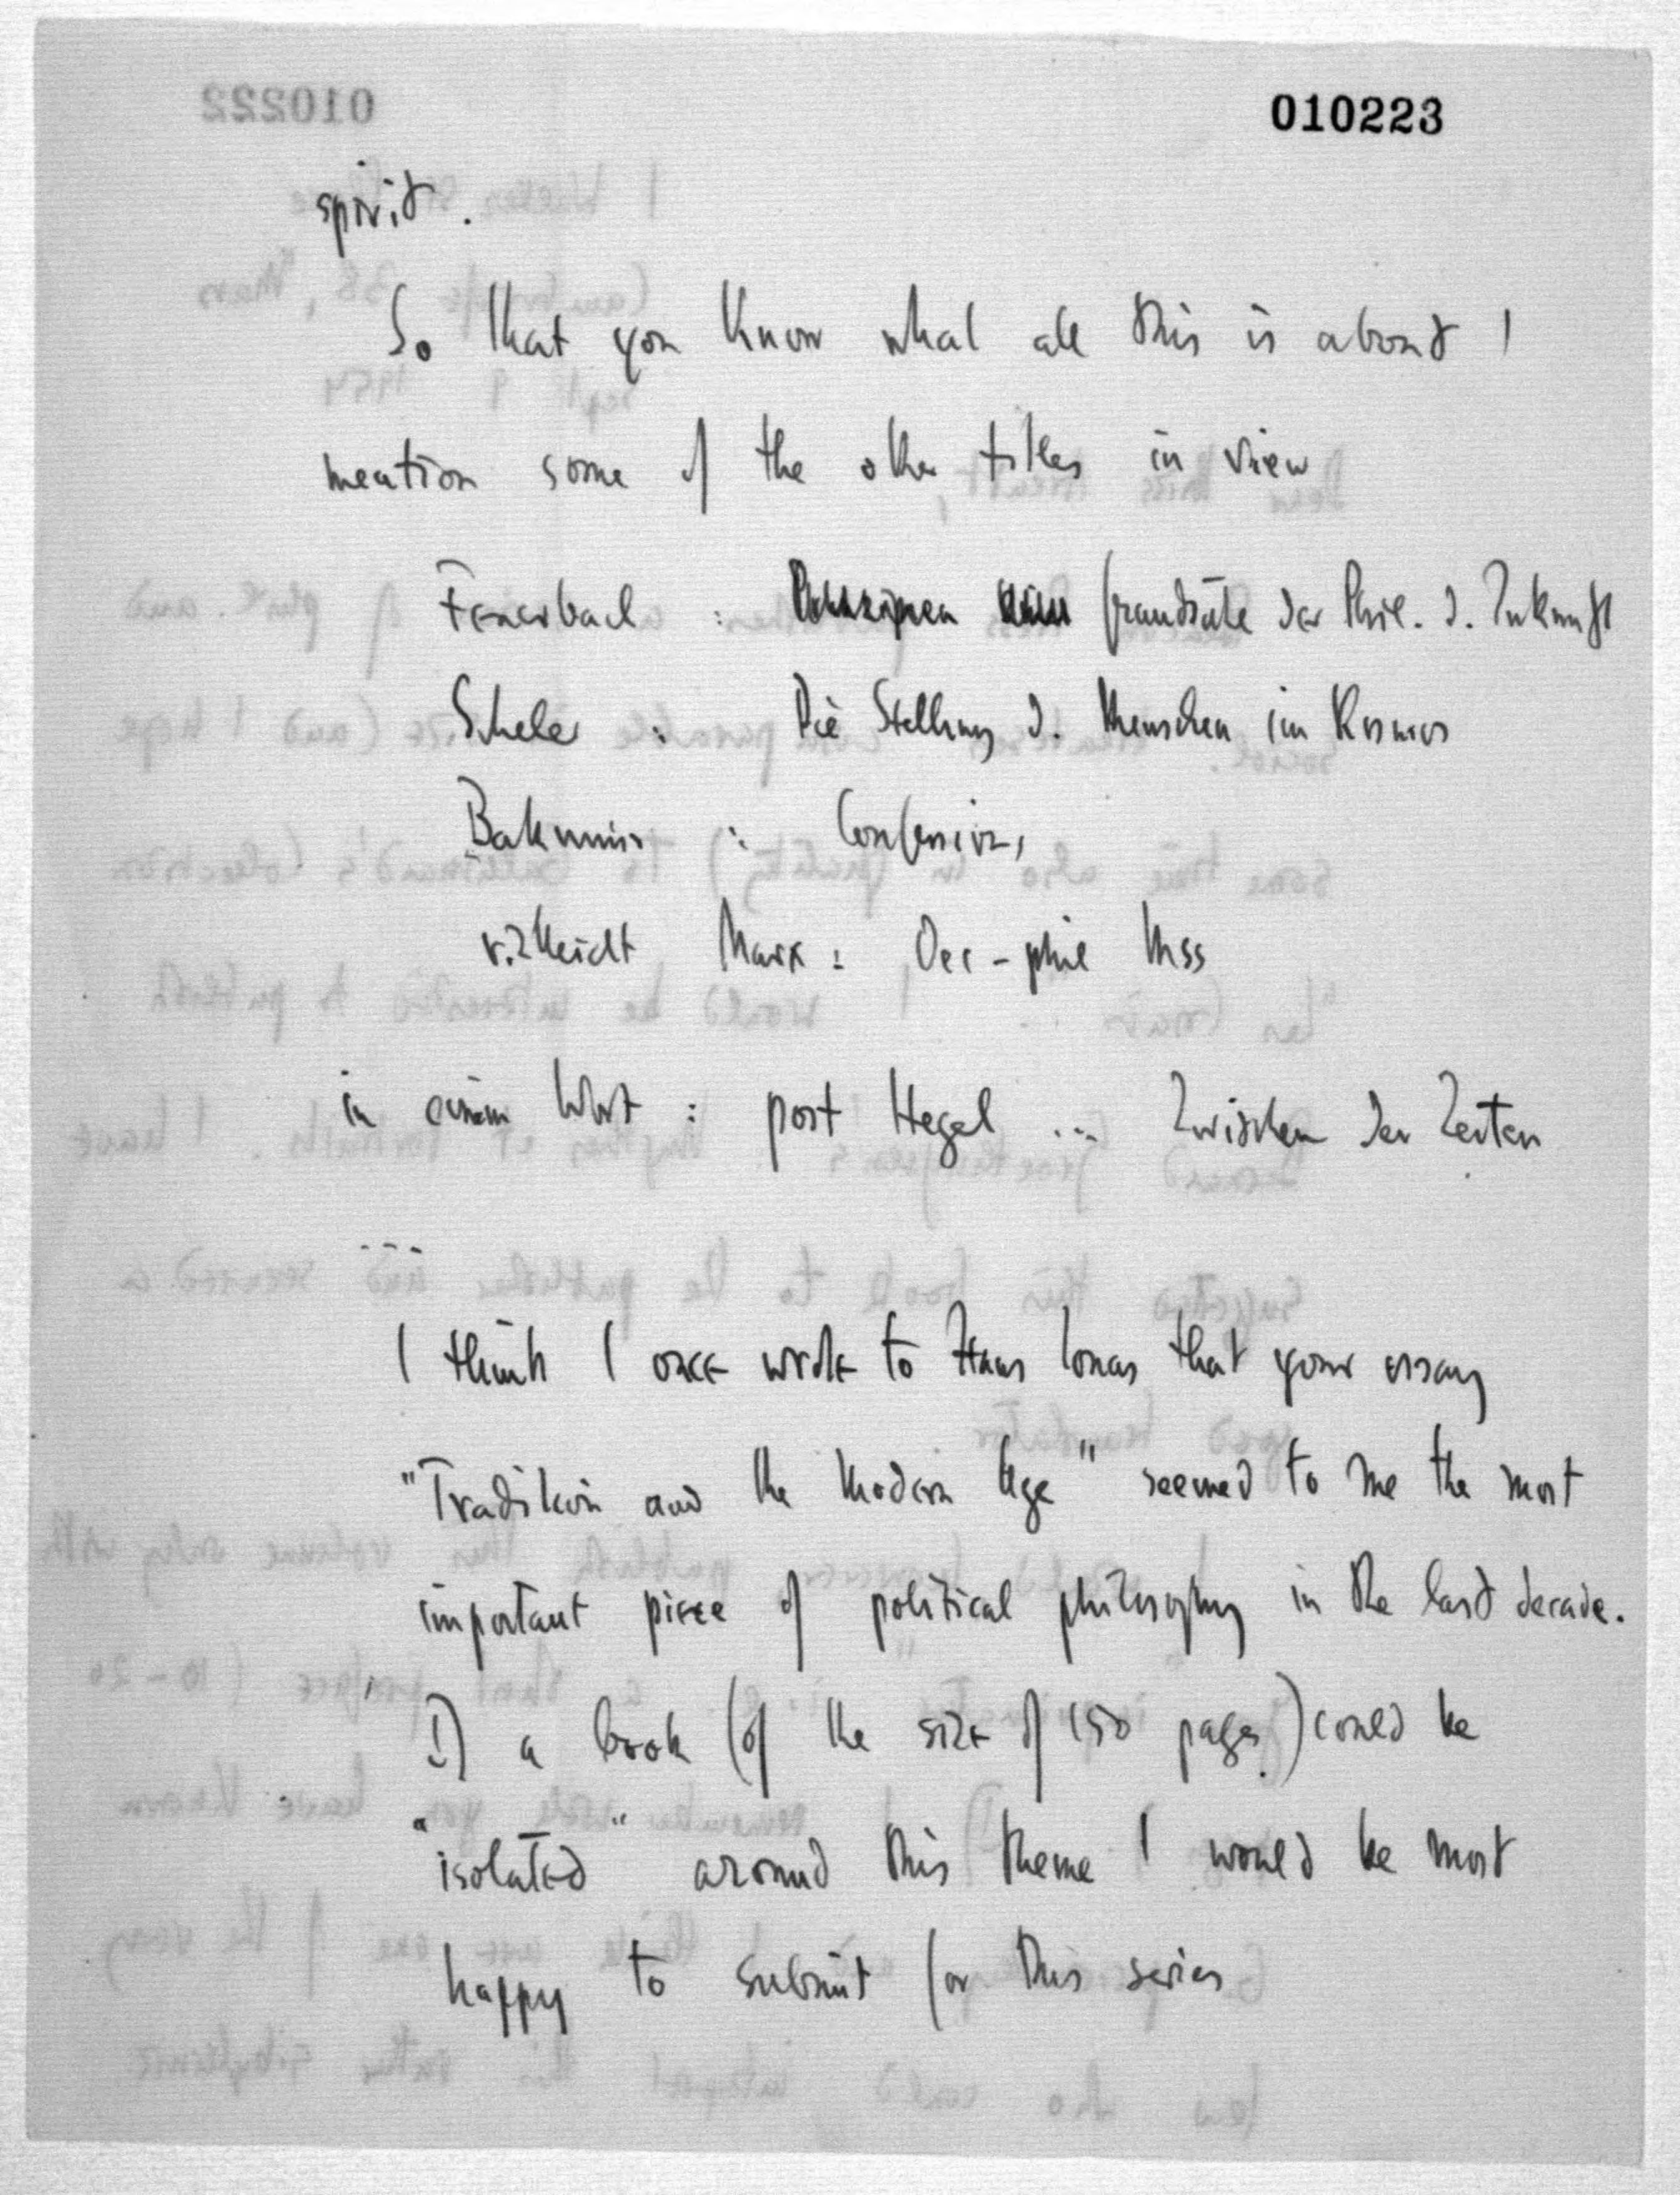 010223
spirit.
So that you know what all this is about I
mention some of the other titles in view
Feuerbach : Grundsätze der Phil. d. Zukunft
Scheler : Die Stellung d. Menschen im Kosmos
Bakunin : Confession,
vielleicht Marx : Oec-phil Mss
in einem Wort : post Hegel ... Zwischen den Zeiten
...
I think I once wrote to Hans Jonas that your essay
"Tradition and the Modern Age" seemed to me the most
important piece of political philosophy in the last decade.
If a book (of the size of 150 pages) could be
"isolated" around this theme I would be most
happy to submit for this series